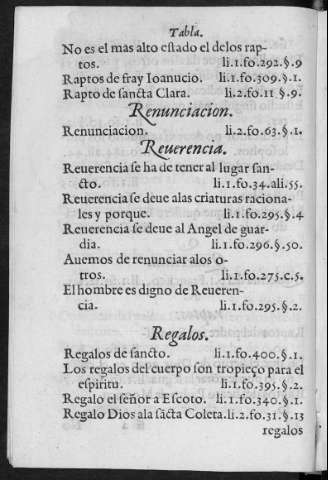 Tabla.
No es el mas alto estado el delos rap-
tos. li.1.fo.292.§.9
Raptos de fray Ioanucio. li.1.fo.309.§.1.
Rapto de sancta Clara. li.2.fo.11.§.9.
Renunciacion.
Renunciacion. li.2.fo.63.§.1.
Reuerencia.
Reuerencia se ha de tener al lugar san-
cto. li.1.fo.34.ali.55.
Reuerencia se deue alas criaturas raciona-
les y porque. li.1.fo.295.§.4
Reuerencia se deue al Angel de guar-
dia. li.1.fo.296.§.50.
Auemos de renunciar alos o-
tros. li.1.fo.275.c.5.
El hombre es digno de Reueren-
cia. li.1.fo.295.§.2.
Regalos.
Regalos de sancto. li.1.fo.400.§.1.
Los regalos del cuerpo son tropieço para el
espiritu. li.1.fo.395.§.2.
Regalo el señor a Escoto. li.1.fo.340.§.1.
Regalo Dios ala sācta Coleta.li.2.fo.31.§.13
regalos